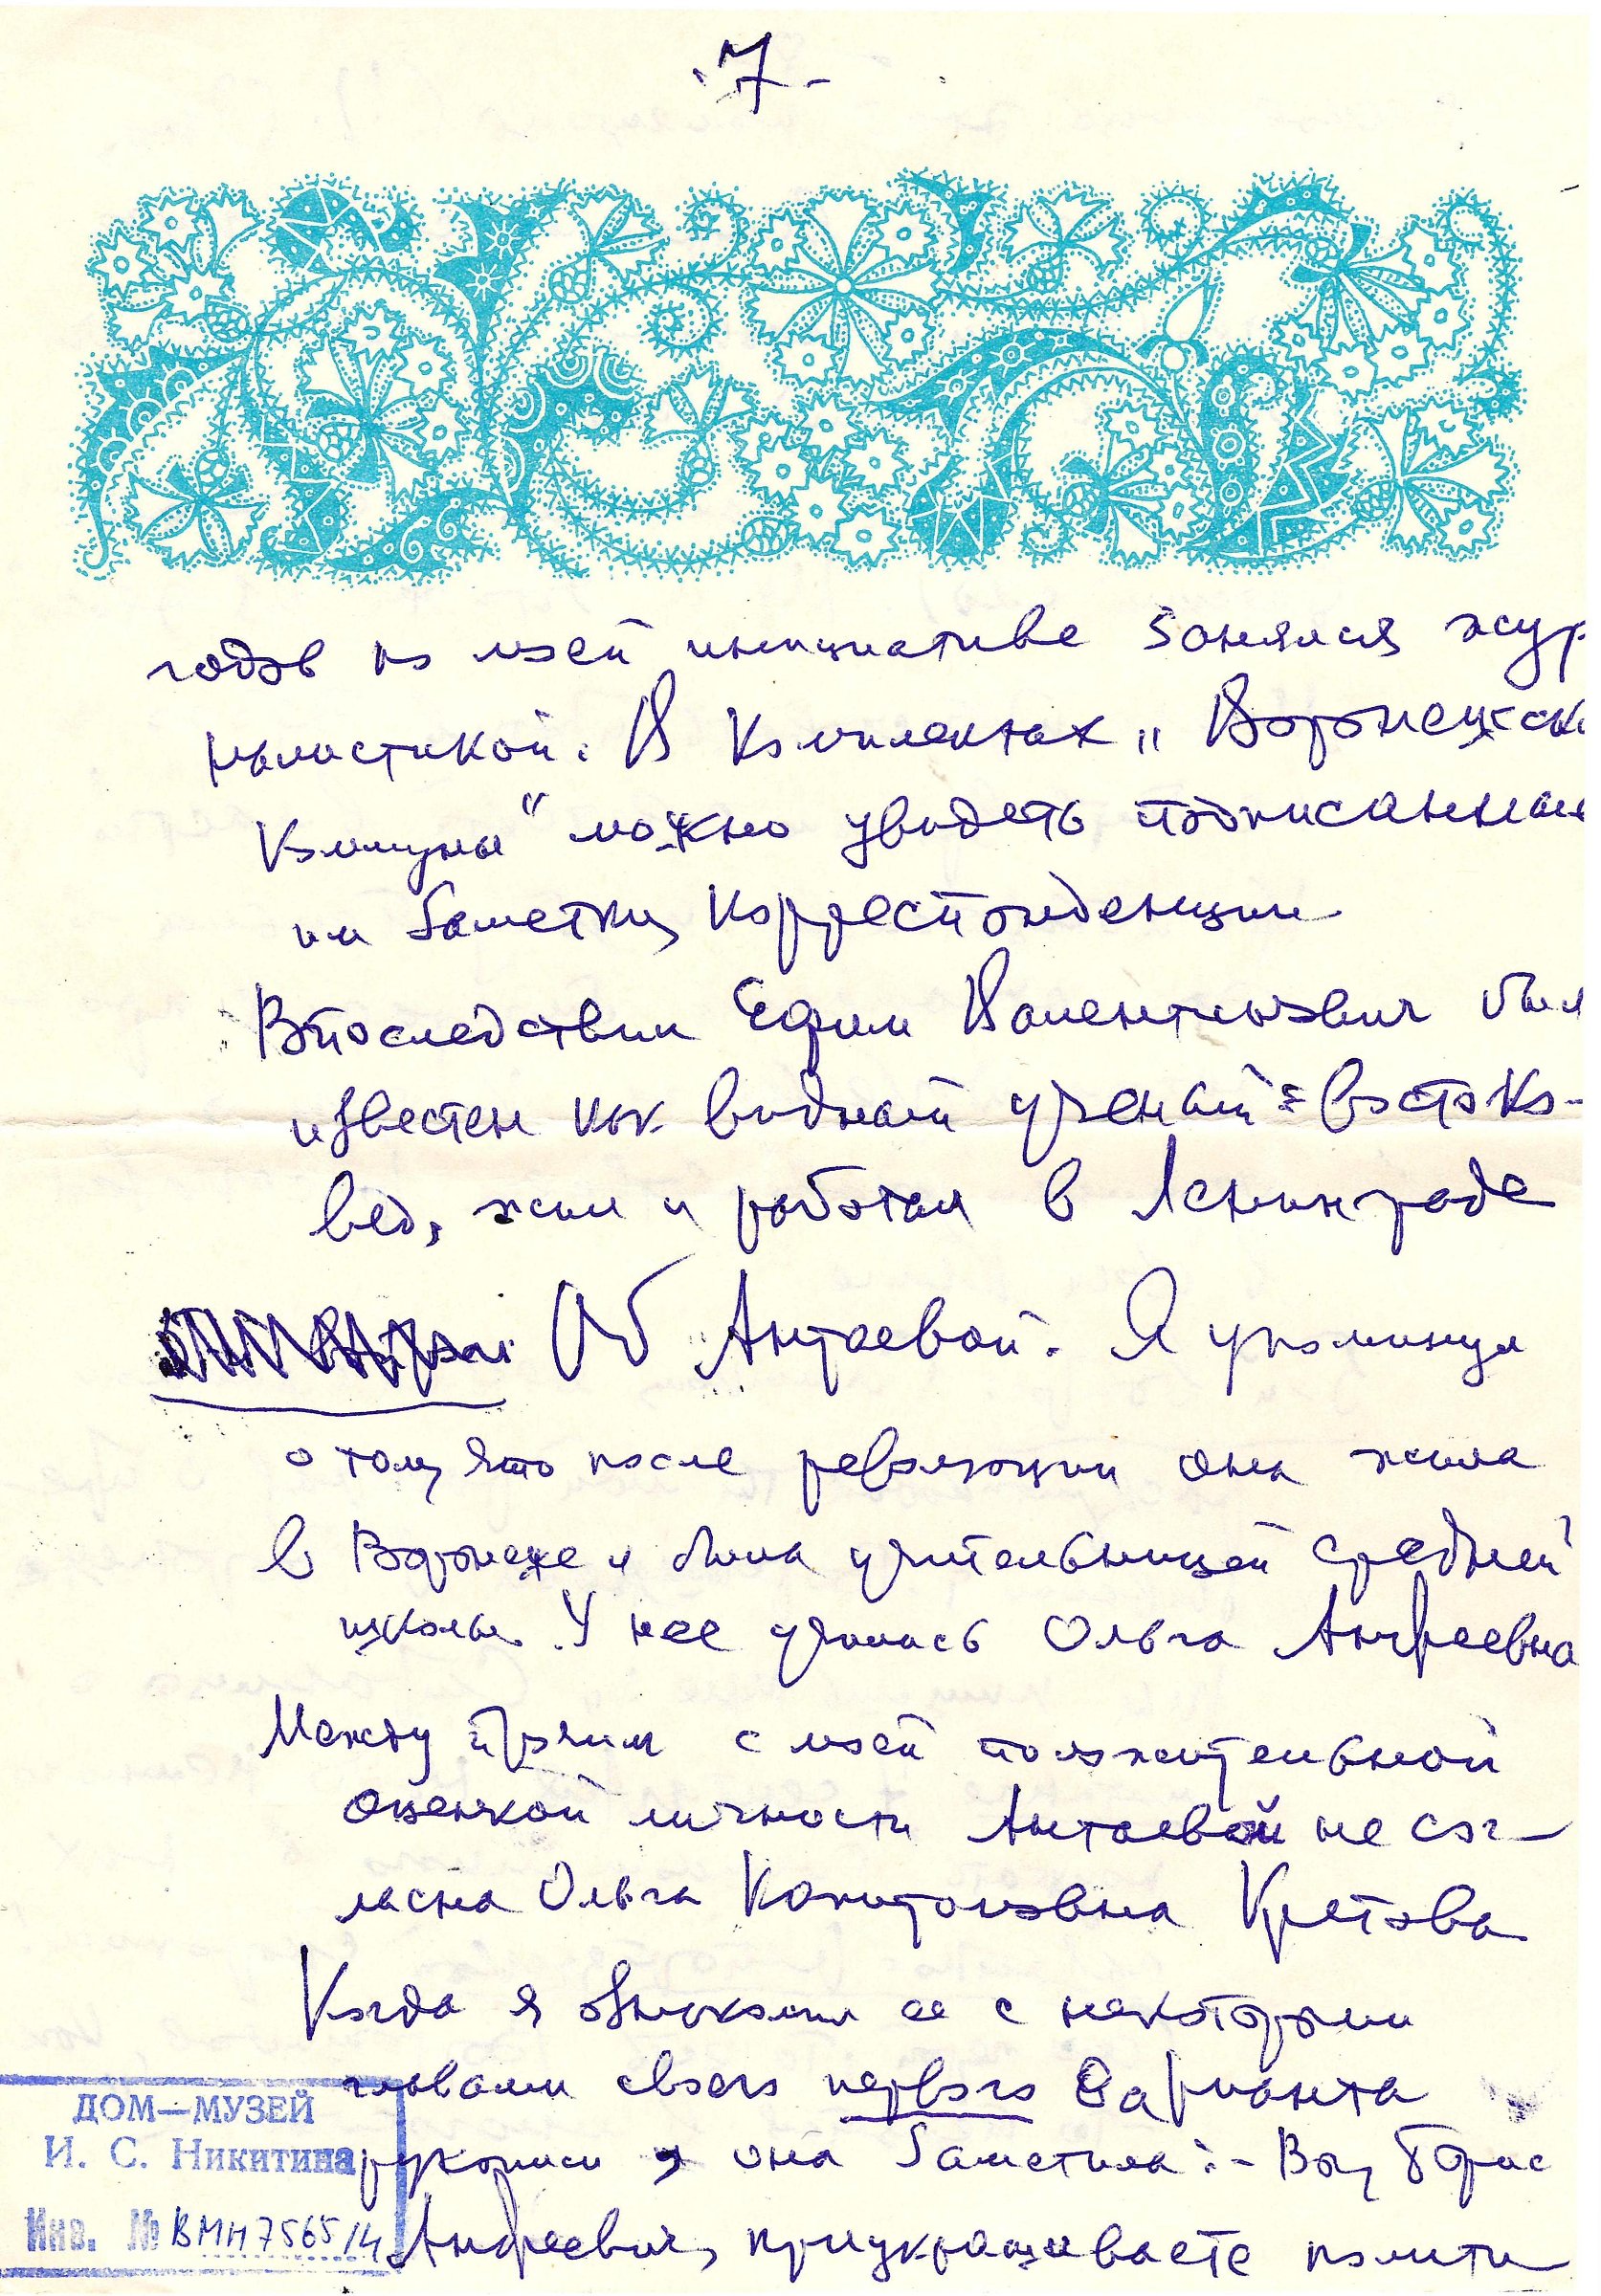 -7-
годов по моей инициативе занялся жур
налистикой. В комплектах „Воронежск
Коммуны" можно увидеть подписанные
им заметки, корреспонденции
Впоследствии Ефим Валентинович был
известен как видный ученый-востоко-
вед, жил и работал в Ленинграде
Об Антаевой. Я упомянул
о том, что после революции она жила
в Воронеже и была учительницей средней
школы. У нее училась Ольга Андреевна
Между прочим с моей положительной
оценкой личности Антаевой не сог-
ласна Ольга Капитоновна Кретова
Когда я ознакомил ее с некоторыми
главами своего первого варианта
рукописи, она заметила: - Вы, Борис
Андреевич, приукрашиваете полити
ДОМ—МУЗЕЙ
И. С. Никитина
Инв. № ВМН 7565/4